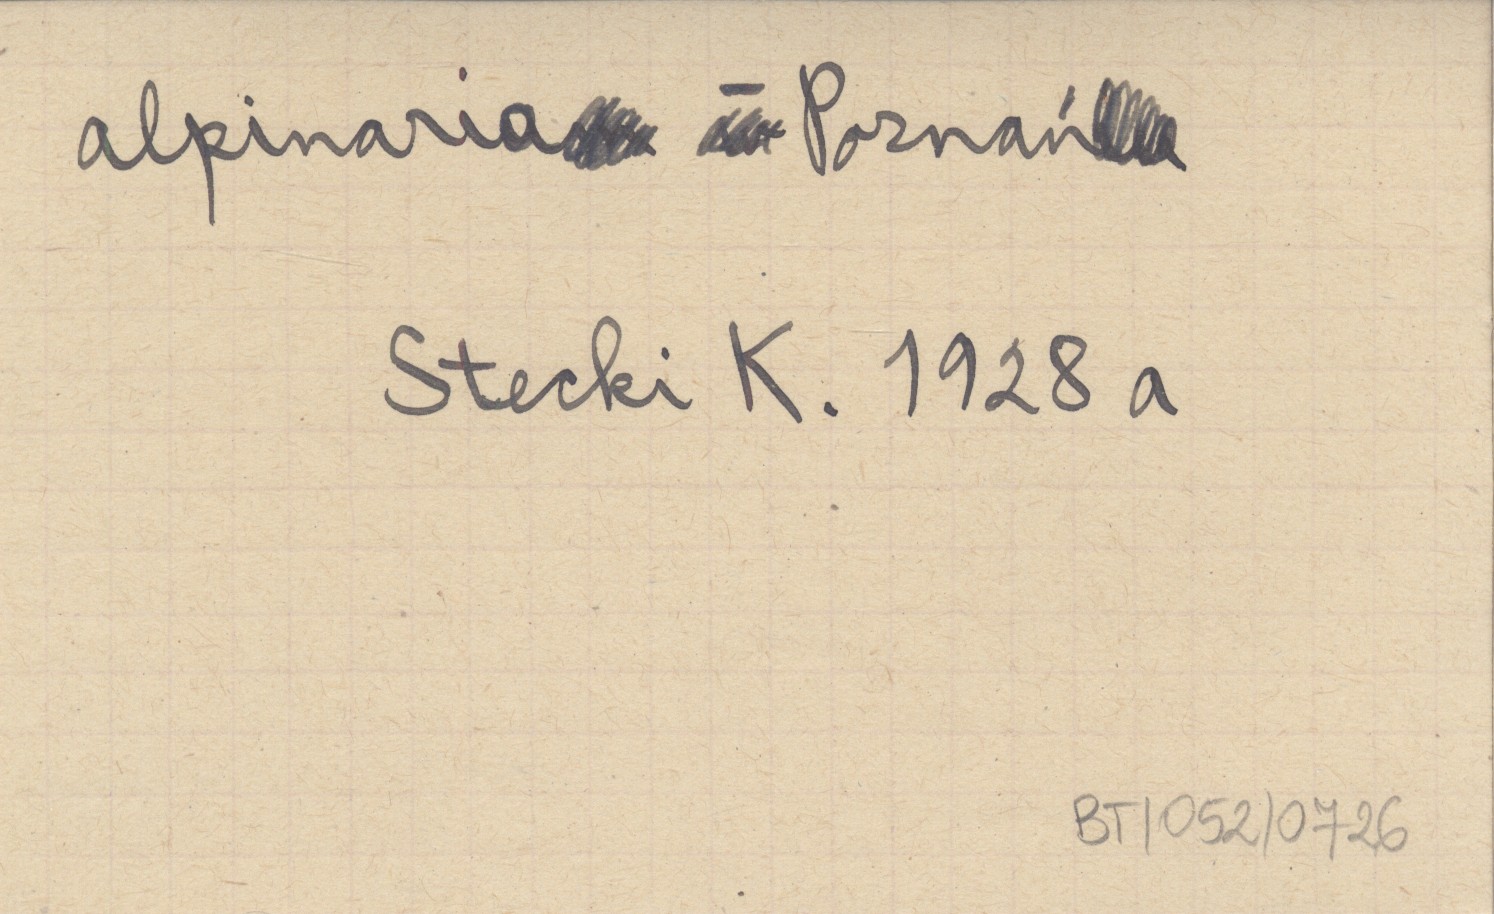 alpinaria - Poznań
Stecki K. 1928 a
BT/052/0726